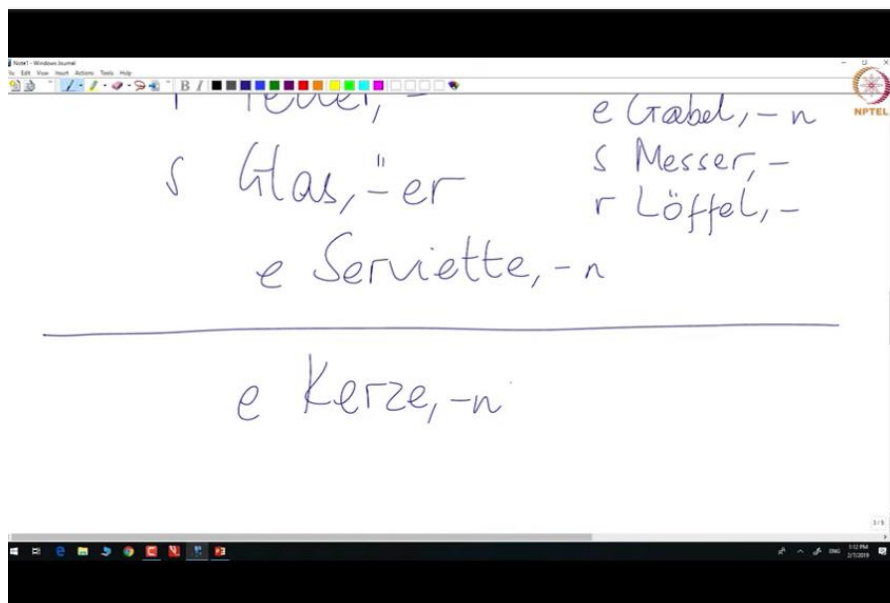 Note1 - Windows Journal
File Edit View Insert Actions Tools Help
B I
NPTEL
r Teller, -
e Gabel, - n
s Messer, -
s Glas, ¨- er
r Löffel, -
e Serviette, - n
e Kerze, - n
3/5
ENG
1:12 PM
2/7/2019